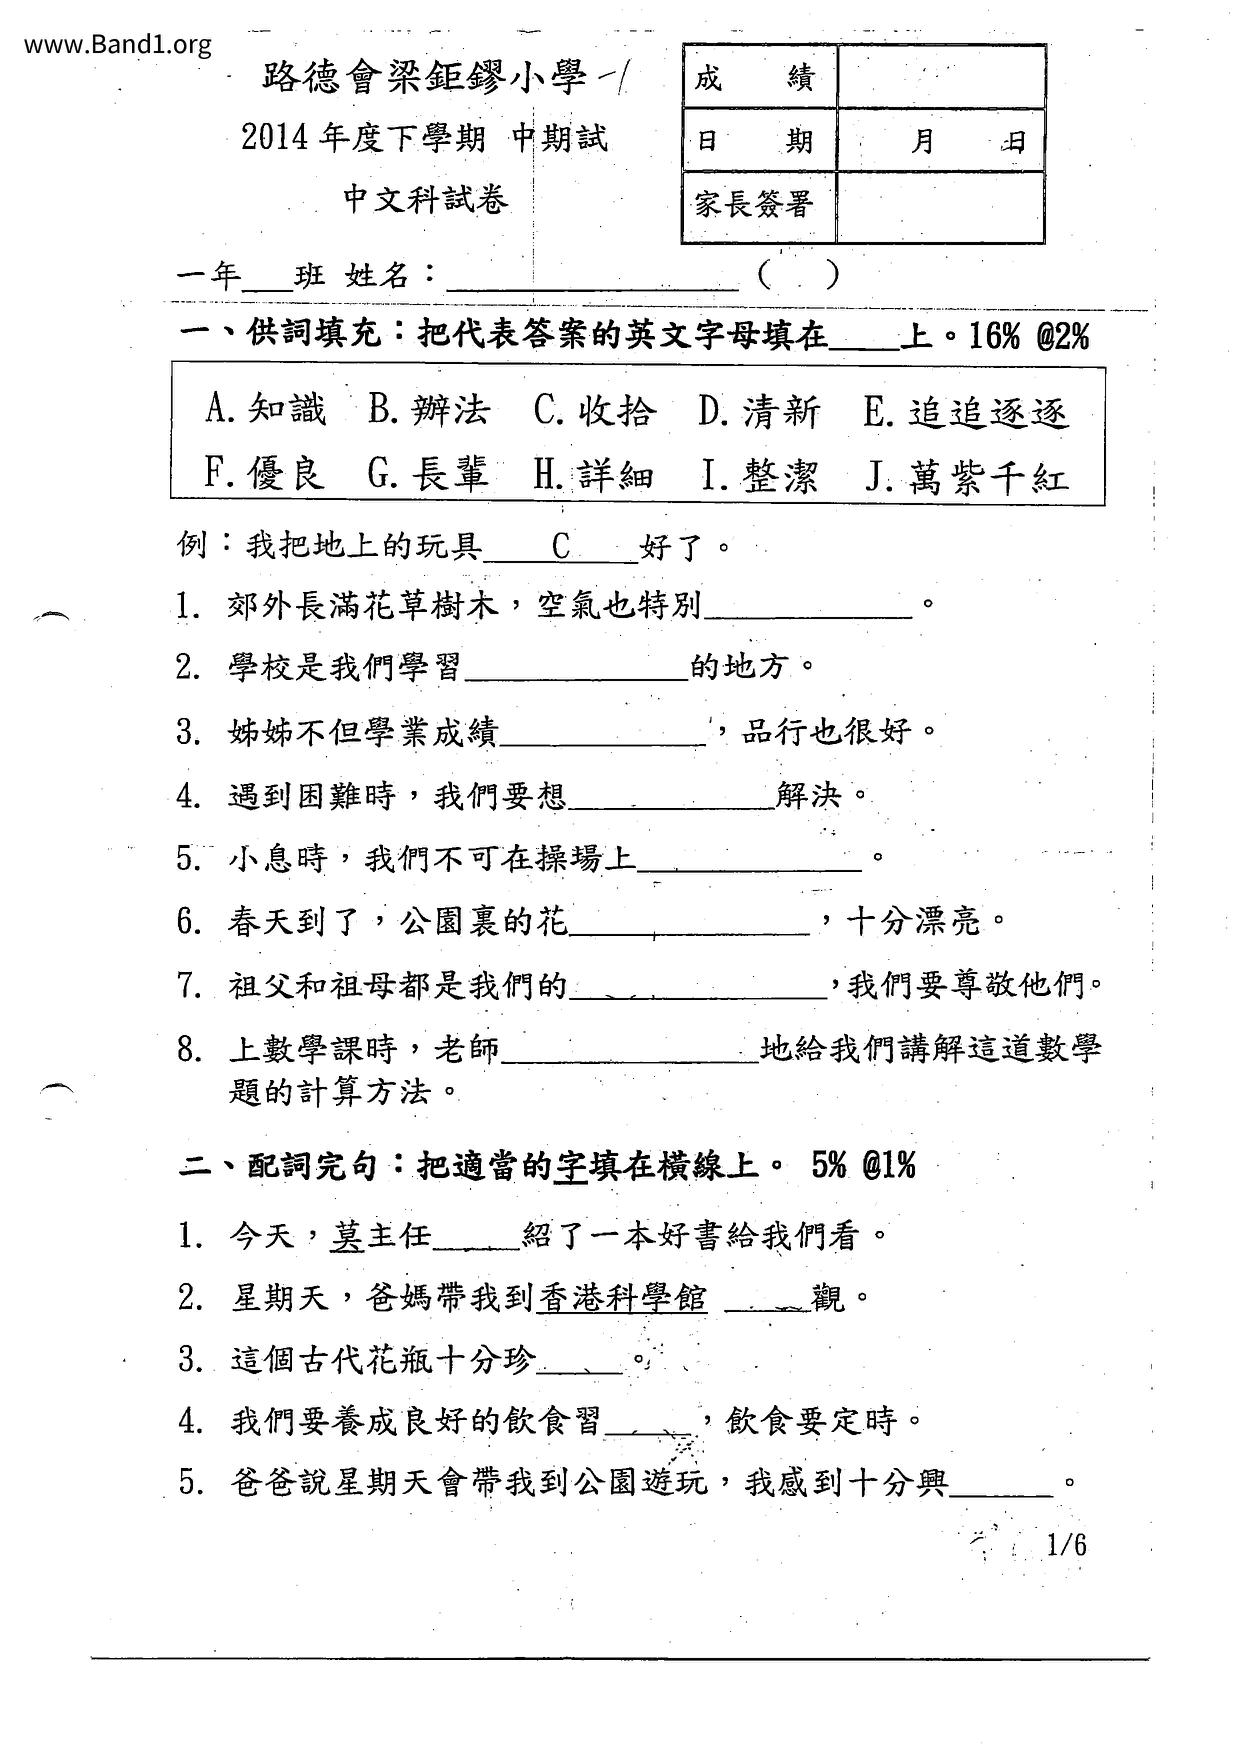 www.Band1.org
路德會梁鉅鏐小學
2014 年度下學期 中期試
中文科試卷
成 績
日 期 月 日
家長簽署
一年___班 姓名：_______________ ( )
一、供詞填充：把代表答案的英文字母填在____上。16% @2%
A. 知識 B. 辦法 C. 收拾 D. 清新 E. 追追逐逐
F. 優良 G. 長輩 H. 詳細 I. 整潔 J. 萬紫千紅
例：我把地上的玩具____C____好了。
1. 郊外長滿花草樹木，空氣也特別____________。
2. 學校是我們學習____________的地方。
3. 姊姊不但學業成績____________，品行也很好。
4. 遇到困難時，我們要想____________解決。
5. 小息時，我們不可在操場上____________。
6. 春天到了，公園裏的花____________，十分漂亮。
7. 祖父和祖母都是我們的____________，我們要尊敬他們。
8. 上數學課時，老師____________地給我們講解這道數學
題的計算方法。
二、配詞完句：把適當的字填在橫線上。 5% @1%
1. 今天，莫主任_____紹了一本好書給我們看。
2. 星期天，爸媽帶我到香港科學館 _____觀。
3. 這個古代花瓶十分珍_____。
4. 我們要養成良好的飲食習_____，飲食要定時。
5. 爸爸說星期天會帶我到公園遊玩，我感到十分興______。
1/6